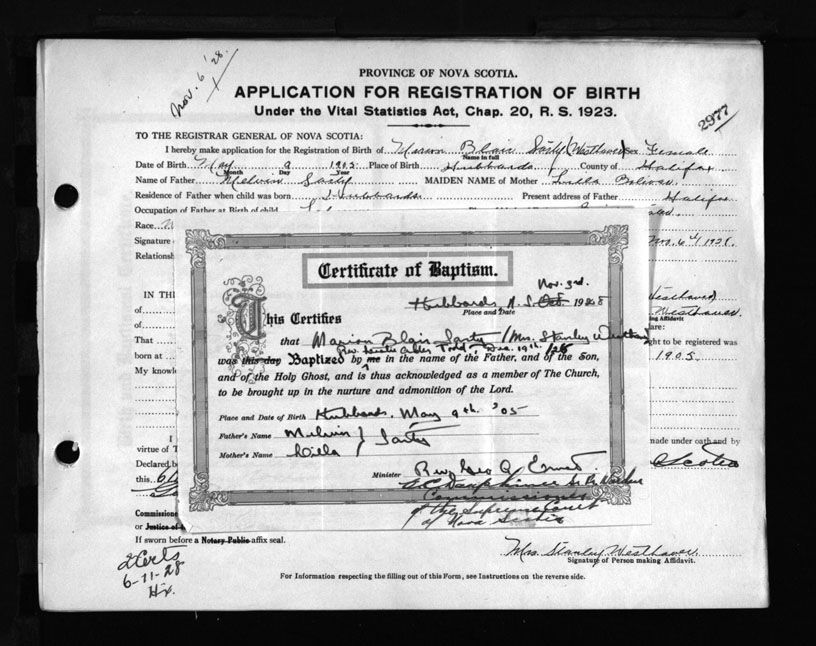 Nov. 6 '28
PROVINCE OF NOVA SCOTIA.
APPLICATION FOR REGISTRATION OF BIRTH
Under the Vital Statistics Act, Chap. 20, R. S. 1923.
2977
TO THE REGISTRAR GENERAL OF NOVA SCOTIA:
I hereby make application for the Registration of Birth of Marion Blair Sarty (Westhaver) Female
Name in full
Date of Birth May 9 1905 Place of Birth Hubbards County of Halifax
Month Day Year
Name of Father Melvin Sarty MAIDEN NAME of Mother
Residence of Father when child was born Hubbards Present address of Father Halifax
Occupation of Father at Birth of child
Race
Signature Nov. 6th 1928.
Relationsh
IN THE Westhaver)
of Westhaver
of ing Affidavit
are:
That ght to be registered was
born at 1905
My knowl
I made under oath and by
virtue of Scotia
Declared b
this 6
Commissione
or Justice of
If sworn before a Notary Public affix seal.
Certificate of Baptism.
Nov. 3rd.
Hubbards N.S. Oct. 1928
Place and Date
This Certifies
that Marion Blair Sarty (Mrs. Stanley Westhaver)
Rev. Acker Dec. 19th
was this day Baptized by me in the name of the Father, and of the Son,
and of the Holy Ghost, and is thus acknowledged as a member of The Church,
to be brought up in the nurture and admonition of the Lord.
Place and Date of Birth Hubbards, May 9th. '05
Father's Name Melvin Sarty
Mother's Name
Minister Rev. Geo. A. Ernst.
Commissioner
of the Supreme Court
of Nova Scotia
2 Certs
6-11-28
Hx.
Mrs. Stanley Westhaver
Signature of Person making Affidavit.
For Information respecting the filling out of this Form, see Instructions on the reverse side.